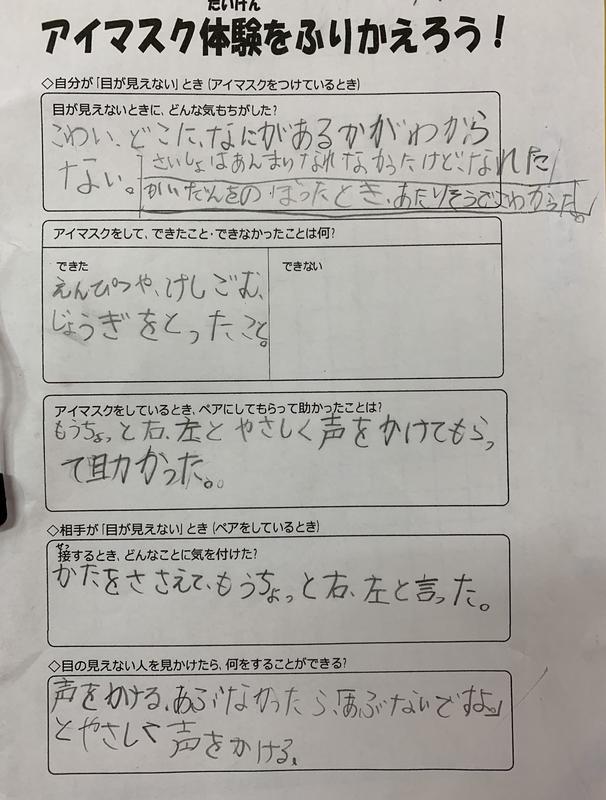 たいけん
アイマスク体験をふりかえろう！
◇自分が「目が見えない」とき（アイマスクをつけているとき）
目が見えないときに、どんな気もちがした？
こわい、どこに、なにがあるかがわから
ない。
さいしょはあんまりなれなかったけど、なれた
かいだんをのぼったとき、あたりそうでこわかった。
アイマスクをして、できたこと・できなかったことは何？
できた
えんぴつや、けしごむ、
じょうぎをとったこと。
できない
アイマスクをしているとき、ペアにしてもらって助かったことは？
もうちょっと右、左とやさしく声をかけてもらっ
て助かった。
◇相手が「目が見えない」とき（ペアをしているとき）
せっ
接するとき、どんなことに気を付けた？
かたをささえて、もうちょっと右、左と言った。
◇目の見えない人を見かけたら、何をすることができる？
声をかける、あぶなかったら、「あぶないですよ。」
とやさしく声をかける。